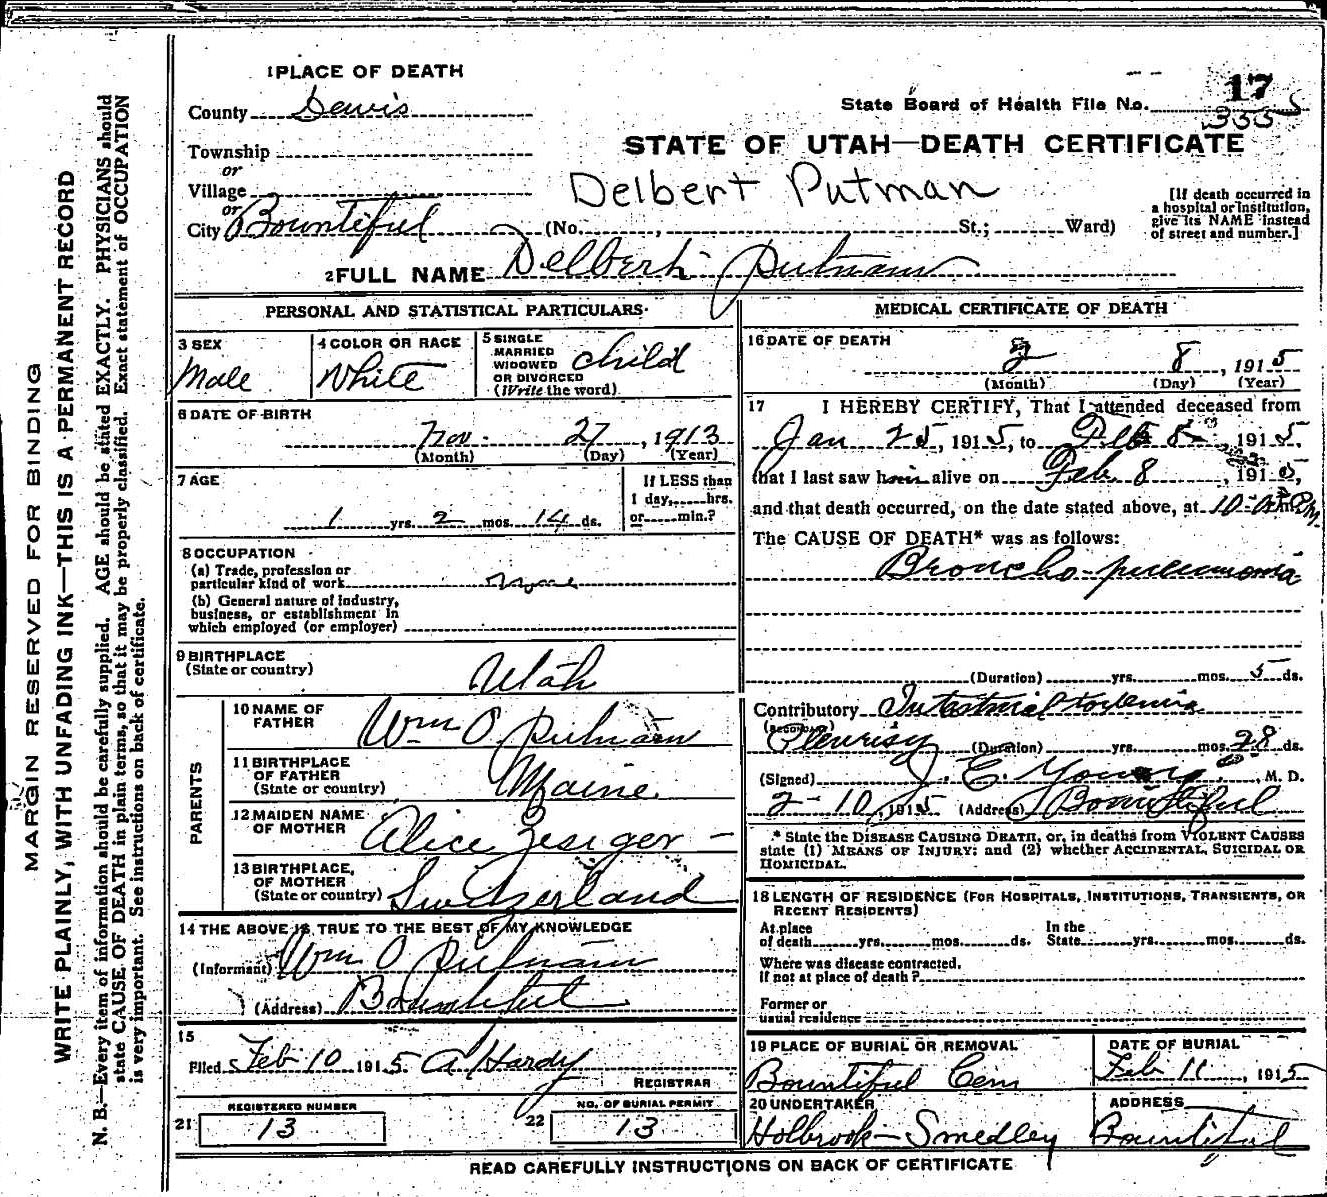 1 PLACE OF DEATH
County Davis
Township
or
Village
or
City Bountiful (No. , St.; Ward)
State Board of Health File No. 17
3555
STATE OF UTAH—DEATH CERTIFICATE
Delbert Putman
[If death occurred in
a hospital or institution,
give its NAME instead
of street and number.]
2 FULL NAME Delbert Putnam
PERSONAL AND STATISTICAL PARTICULARS
3 SEX
Male
4 COLOR OR RACE
White
5 SINGLE
MARRIED
WIDOWED
OR DIVORCED
(Write the word)
child
6 DATE OF BIRTH
Nov. 27, 1913
(Month) (Day) (Year)
7 AGE
1 yrs. 2 mos. 14 ds.
If LESS than
1 day, hrs.
or min.?
8 OCCUPATION
(a) Trade, profession or
particular kind of work
(b) General nature of industry,
business, or establishment in
which employed (or employer)
9 BIRTHPLACE
(State or country)
Utah
PARENTS
10 NAME OF
FATHER
Wm O Putnam
11 BIRTHPLACE
OF FATHER
(State or country)
Maine
12 MAIDEN NAME
OF MOTHER
Alice Zesiger
13 BIRTHPLACE,
OF MOTHER
(State or country)
Switzerland
14 THE ABOVE IS TRUE TO THE BEST OF MY KNOWLEDGE
(Informant) Wm O Putnam
(Address) Bountiful
15
Filed Feb 10 1915. A Hardy
REGISTRAR
REGISTERED NUMBER
21 13
NO. OF BURIAL PERMIT
22 13
MEDICAL CERTIFICATE OF DEATH
16 DATE OF DEATH
2 8, 1915
(Month) (Day) (Year)
17 I HEREBY CERTIFY, That I attended deceased from
Jan 25, 1915, to Feb 8 1915,
that I last saw him alive on Feb 8, 1915,
and that death occurred, on the date stated above, at 10 P.M.
The CAUSE OF DEATH* was as follows:
Broncho-pneumonia
(Duration) yrs. mos. 5 ds.
Contributory Intestinal toxemia
(SECONDARY)
Pleurisy (Duration) yrs. mos. 28 ds.
(Signed) J. C. Young, M. D.
2-10, 1915 (Address) Bountiful
* State the DISEASE CAUSING DEATH, or, in deaths from VIOLENT CAUSES
state (1) MEANS OF INJURY; and (2) whether ACCIDENTAL, SUICIDAL OR
HOMICIDAL.
18 LENGTH OF RESIDENCE (FOR HOSPITALS, INSTITUTIONS, TRANSIENTS, OR
RECENT RESIDENTS)
At place
of death yrs. mos. ds.
In the
State yrs. mos. ds.
Where was disease contracted,
If not at place of death?
Former or
usual residence
19 PLACE OF BURIAL OR REMOVAL
Bountiful Cem
DATE OF BURIAL
Feb 11, 1915
20 UNDERTAKER
Holbrook-Smedley
ADDRESS
Bountiful
READ CAREFULLY INSTRUCTIONS ON BACK OF CERTIFICATE
MARGIN RESERVED FOR BINDING
WRITE PLAINLY, WITH UNFADING INK—THIS IS A PERMANENT RECORD
N. B.—Every item of information should be carefully supplied. AGE should be stated EXACTLY. PHYSICIANS should
state CAUSE OF DEATH in plain terms, so that it may be properly classified. Exact statement of OCCUPATION
is very important. See instructions on back of certificate.